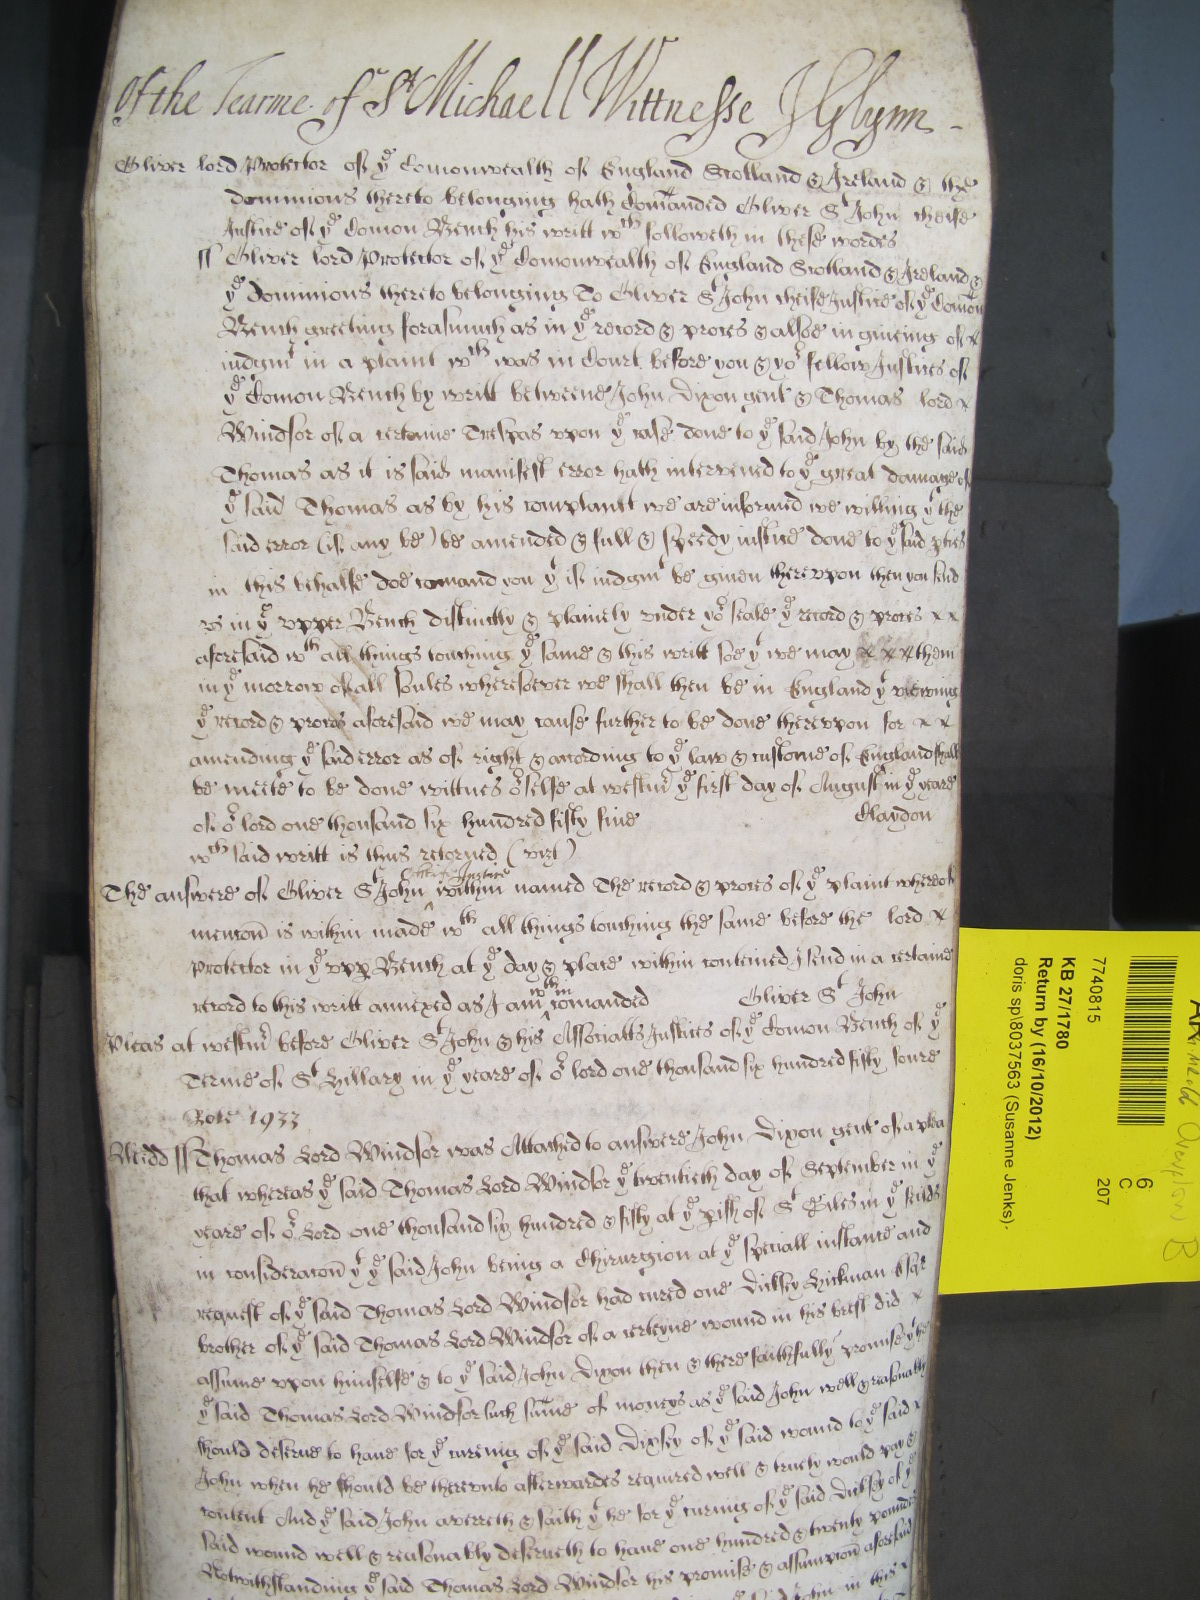 Of the Tearme of St Michaell Wittnesse J Glynn
Oliver lord Protector of ye Comonwealth of England Scotland & Ireland & the
dominions thereto belonging hath Comanded Oliver St John cheife
Justice of ye Comon Bench his writt wch followeth in these wordes
ss Oliver lord Protector of ye Comonwealth of England Scotland & Ireland &
ye Dominions thereto belonging To Oliver St John cheife Justice of ye Comon
Bench greeting forasmuch as in ye record & proces & alsoe in giueing of x
iudgmt in a plaint wch was in Court before you & yor fellow Justices of
ye Comon Bench by writt betweene John Dixon gent & Thomas lord x
Windsor of a certaine Trespas vpon ye case done to ye said John by the said
Thomas as it is said manifest error hath intervened to ye great damage of
ye said Thomas as by his complaint we are informd we willing yt the
said error (if any be) be amended & full & speedy iustice done to ye said pties
in this behalfe doe comand you yt if iudgmt be giuen therevpon then you send
vs in ye vpper Bench distinctly & plainely vnder yor seale ye record & proces x x
aforesaid wth all things touching ye same & this writt soe yt we may x x x them
in ye morrow of all soules wheresoever we shall then be in England yt viewing
ye record & proces aforesaid we may cause further to be done therevpon for x x
amending ye said error as of right & according to ye law & custome of England shall
be meete to be done wittnes orselfe at westmr ye first day of August in ye yeare
of or lord one thousand six hundred fifty fiue Claydon
wch said writt is thus retorned (vizt)
The answere of Oliver St John cheife Justice within named The record & proces of ye plaint whereof
mencon is within made wth all things touching the same before the lord x
Protector in ye vpp Bench at ye day & place within conteined I send in a certaine
record to this writt annexed as I am wthin comanded Oliver St John
Pleas at westmr before Oliver St John & his Associatts Justices of ye Comon Bench of ye
Terme of St Hillary in ye yeare of or lord one thousand six hundred fifty foure
Rote 1933
Midd ss Thomas Lord Windsor was Attached to answere John Dixon gent of a plea
that whereas ye said Thomas Lord Windsor ye twentieth day of September in ye
yeare of or Lord one thousand six hundred & fifty at ye pish of St Giles in ye feilds
in consideracon yt ye said John being a Chirurgion at ye speciall instance and
request of ye said Thomas Lord Windsor had cured one Dicksy Hickman Esqr
brother of ye said Thomas Lord Windsor of a certeyne wound in his brest did x
assume vpon himselfe & to ye said John Dixon then & there faithfully promise yt he
ye said Thomas Lord Windsor such sume of moneys as ye said John well & reasonably
should deserue to haue for ye cureing of ye said Dixsy of ye said wound to ye said x
John when he should be therevnto afterwardes required well & truely would pay &
content And ye said John averreth & saith yt he for ye curing of ye said Dicksy of ye
said wound well & reasonably deserueth to haue one hundred & twenty pounds
Notwithstanding ye said Thomas Lord Windsor his promise & assumpcon aforesaid
said John in this x
7740815
KB 27/1780
Return by (16/10/2012)
doris sp\8037563 (Susanne Jenks)
6
C
207